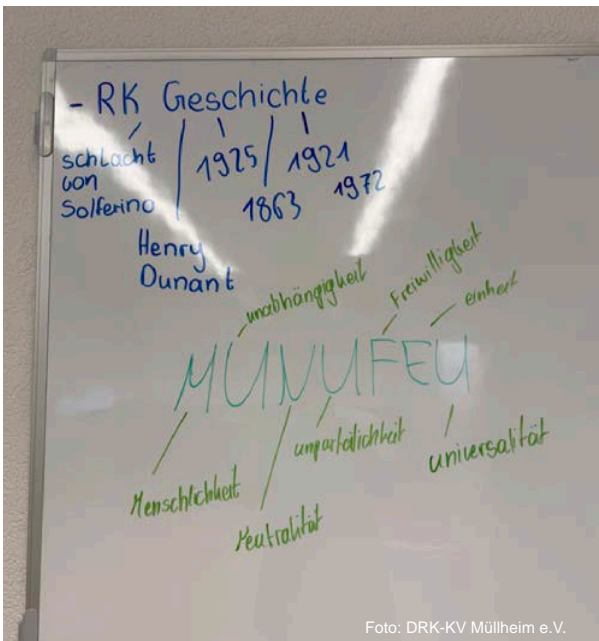 - RK Geschichte
schlacht
von
Solferino
1925
1921
1863
1972
Henry
Dunant
unabhängigkeit
Freiwilligkeit
einheit
MUNUFEU
unparteilichkeit
universalität
Menschlichkeit
Neutralität
Foto: DRK-KV Müllheim e.V.